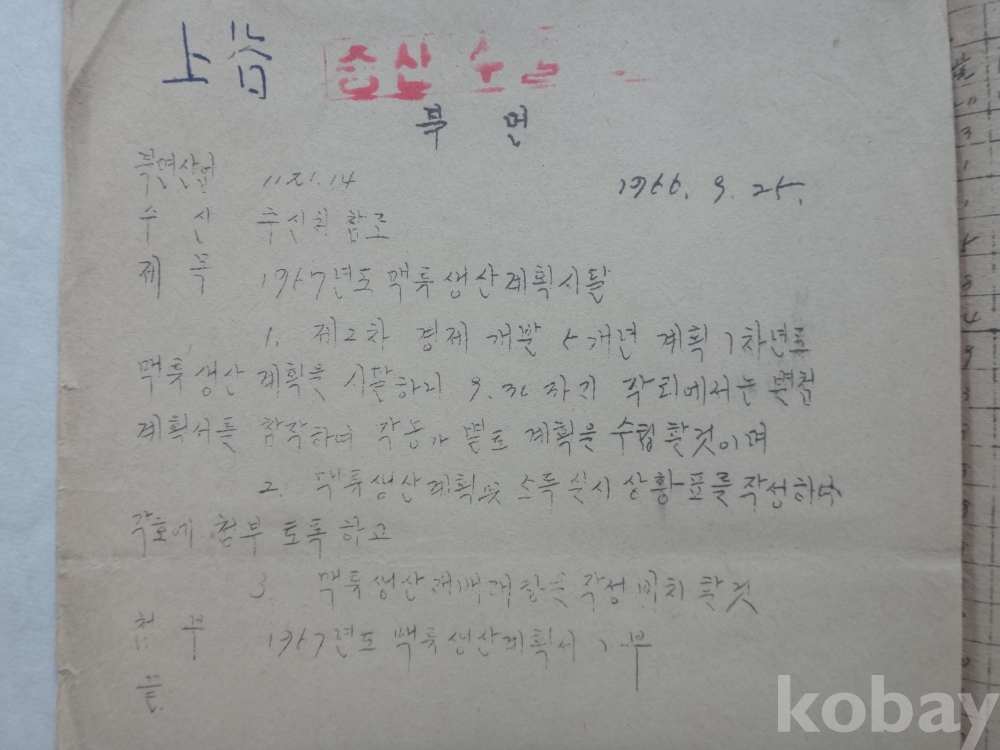 上谷
증산 수
북 면
북면산업 1121.14 1966. 9. 25.
수 신 수신처 참조
제 목 1967년도 맥류생산계획시달
1. 제2차 경제 개발 5개년 계획 1차년도
맥류생산 계획을 시달하니 9. 30 까지 각 리에서는 별첨
계획서를 참작하여 각농가 별로 계획을 수립 할것이며
2. 맥류생산계획및 소득 실시 상황표를 작성하여
각호에 첨부 토록 하고
3 맥류생산재배대장을 작성 비치 할것
첨 부 1967년도 맥류생산계획서 1부
끝.
kobay